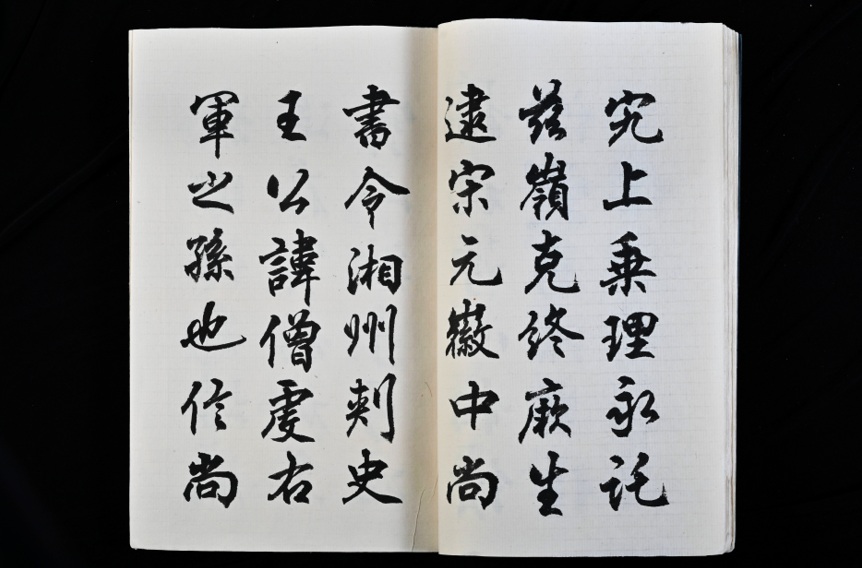 究上乗理永託
茲嶺克終厥生
逮宋元徽中尚
書令湘州刾史
王公諱僧虔右
軍之孫也信尚